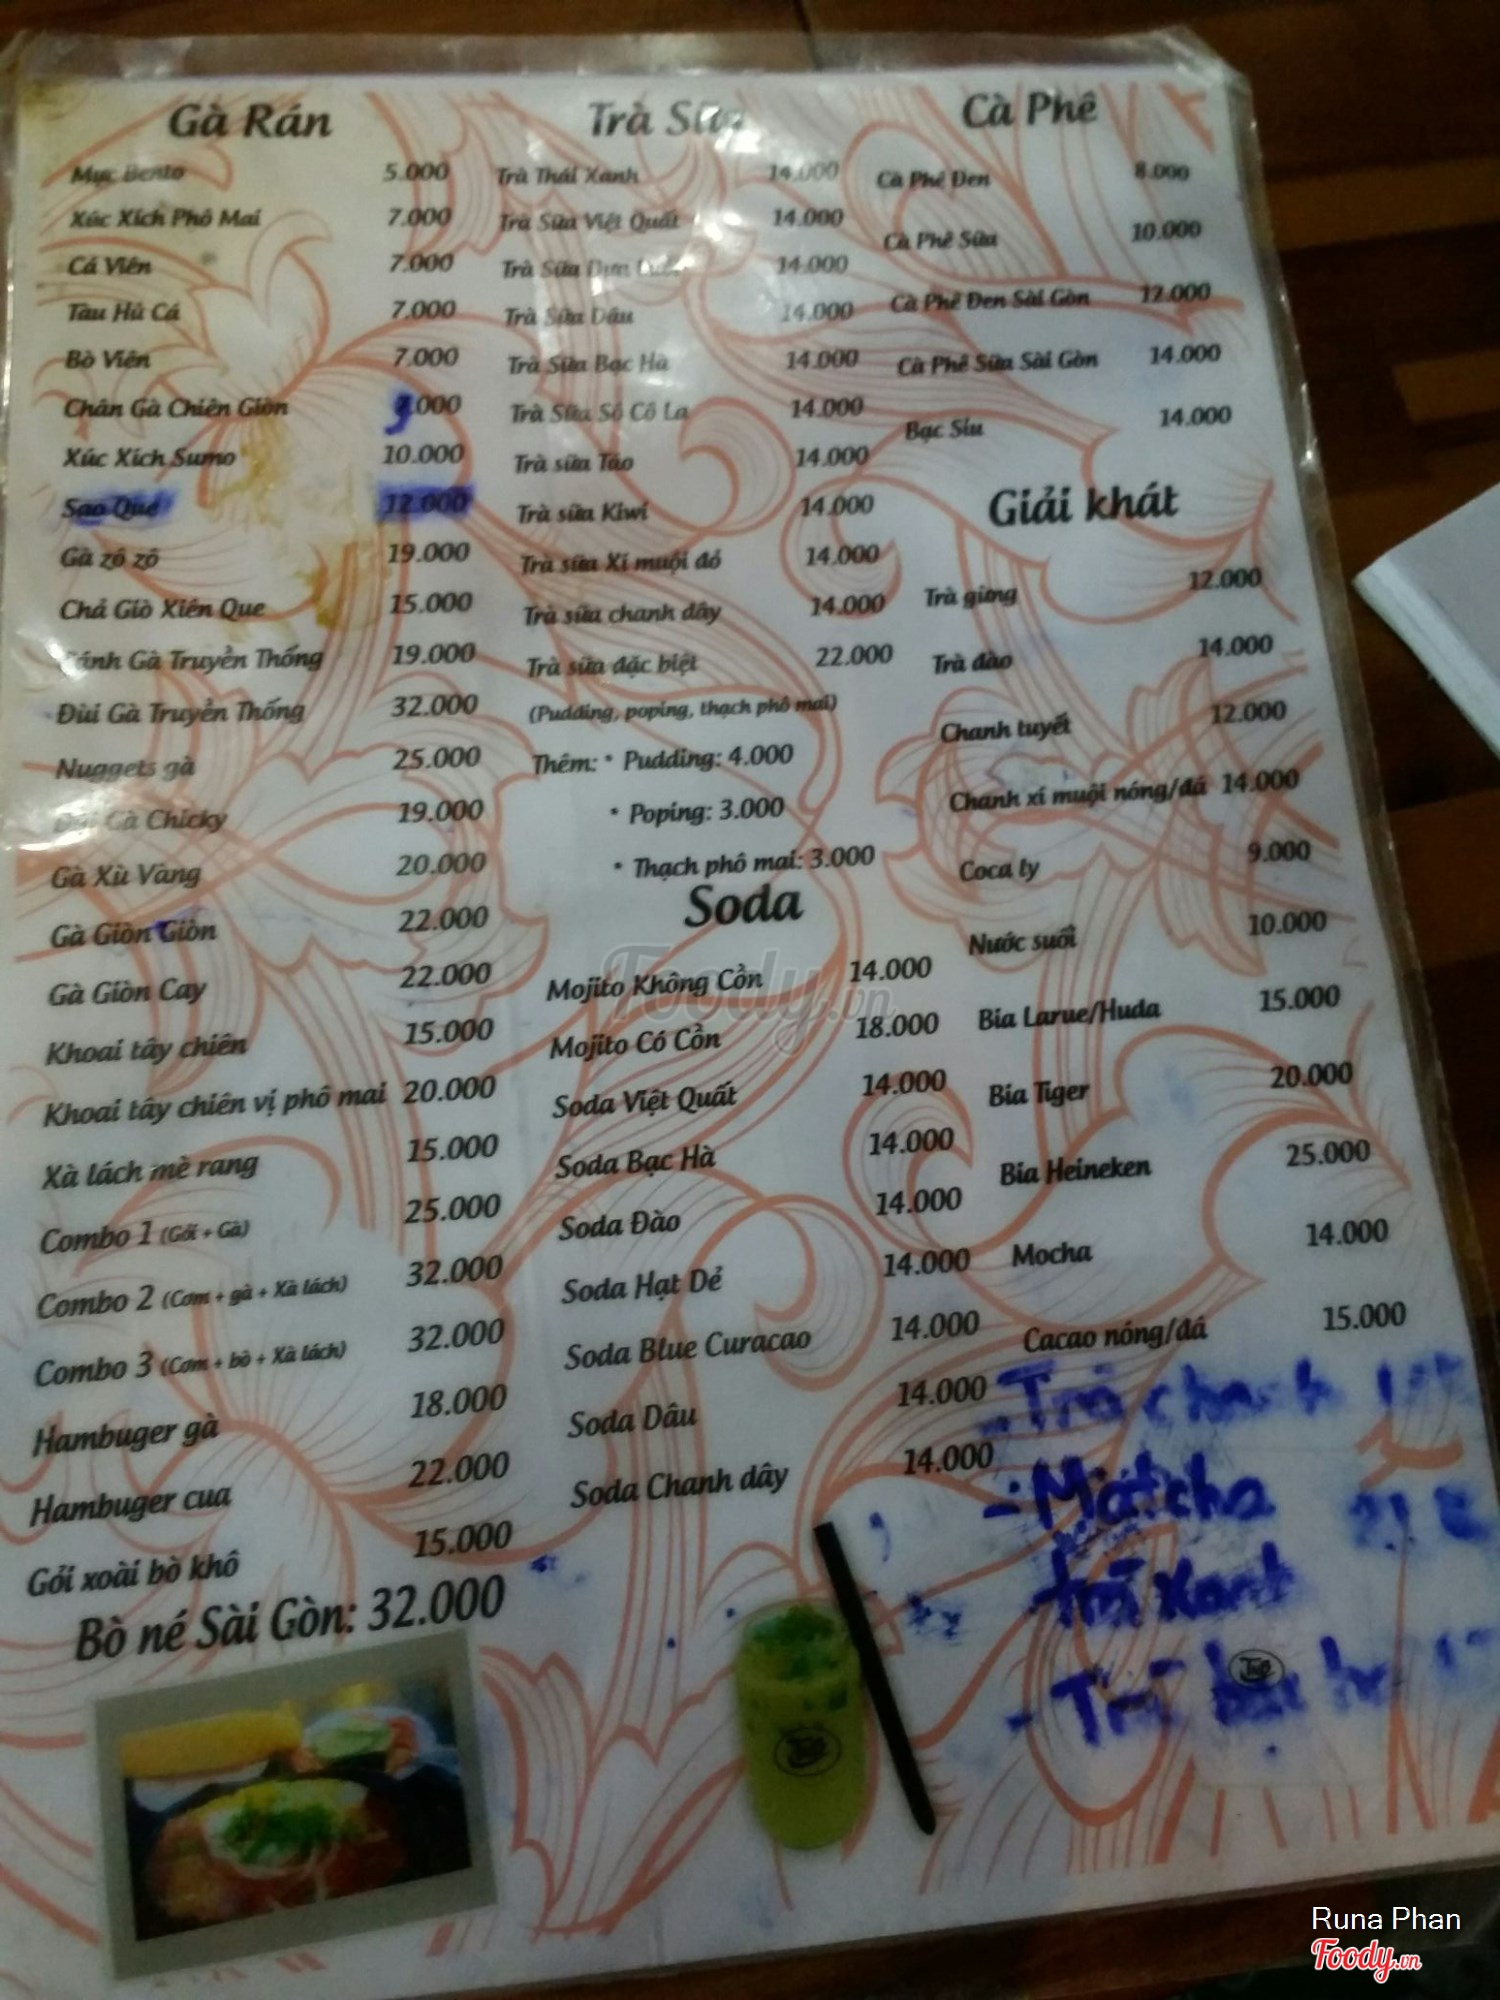 Gà Rán
Mực Bento 5.000
Xúc Xích Phô Mai 7.000
Cá Viên 7.000
Tàu Hủ Cá 7.000
Bò Viên 7.000
Chân Gà Chiên Giòn .000
Xúc Xích Sumo 10.000
Sao Que 12.000
Gà zô zô 19.000
Chả Giò Xiên Que 15.000
Gà Truyền Thống 19.000
Đùi Gà Truyền Thống 32.000
Nuggets gà 25.000
Gà Chicky 19.000
Gà Xù Vàng 20.000
Gà Giòn Giòn 22.000
Gà Giòn Cay 22.000
Khoai tây chiên 15.000
Khoai tây chiên vị phô mai 20.000
Xà lách mè rang 15.000
Combo 1 (Gỏi + Gà) 25.000
Combo 2 (Cơm + gà + Xà lách) 32.000
Combo 3 (Cơm + bò + Xà lách) 32.000
Hambuger gà 18.000
Hambuger cua 22.000
Gỏi xoài bò khô 15.000
Bò né Sài Gòn: 32.000
Trà Sữa
Trà Thái Xanh 14.000
Trà Sữa Việt Quất 14.000
Trà Sữa 14.000
Trà Sữa Dâu 14.000
Trà Sữa Bạc Hà 14.000
Trà Sữa Sô Cô La 14.000
Trà sữa Táo 14.000
Trà sữa Kiwi 14.000
Trà sữa Xí muội đỏ 14.000
Trà sữa chanh dây 14.000
Trà sữa đặc biệt 22.000
(Pudding, poping, thạch phô mai)
Thêm: * Pudding: 4.000
* Poping: 3.000
* Thạch phô mai: 3.000
Soda
Mojito Không Cồn 14.000
Mojito Có Cồn 18.000
Soda Việt Quất 14.000
Soda Bạc Hà 14.000
Soda Đào 14.000
Soda Hạt Dẻ 14.000
Soda Blue Curacao 14.000
Soda Dâu 14.000
Soda Chanh dây 14.000
Cà Phê
Cà Phê Đen 8.000
Cà Phê Sữa 10.000
Cà Phê Đen Sài Gòn 12.000
Cà Phê Sữa Sài Gòn 14.000
Bạc Sỉu 14.000
Giải khát
Trà gừng 12.000
Trà đào 14.000
Chanh tuyết 12.000
Chanh xí muội nóng/đá 14.000
Coca ly 9.000
Nước suối 10.000
Bia Larue/Huda 15.000
Bia Tiger 20.000
Bia Heineken 25.000
Mocha 14.000
Cacao nóng/đá 15.000
- Trà chanh
- Matcha
trà xanh
- Trà
Foody.vn
Runa Phan
Foody.vn